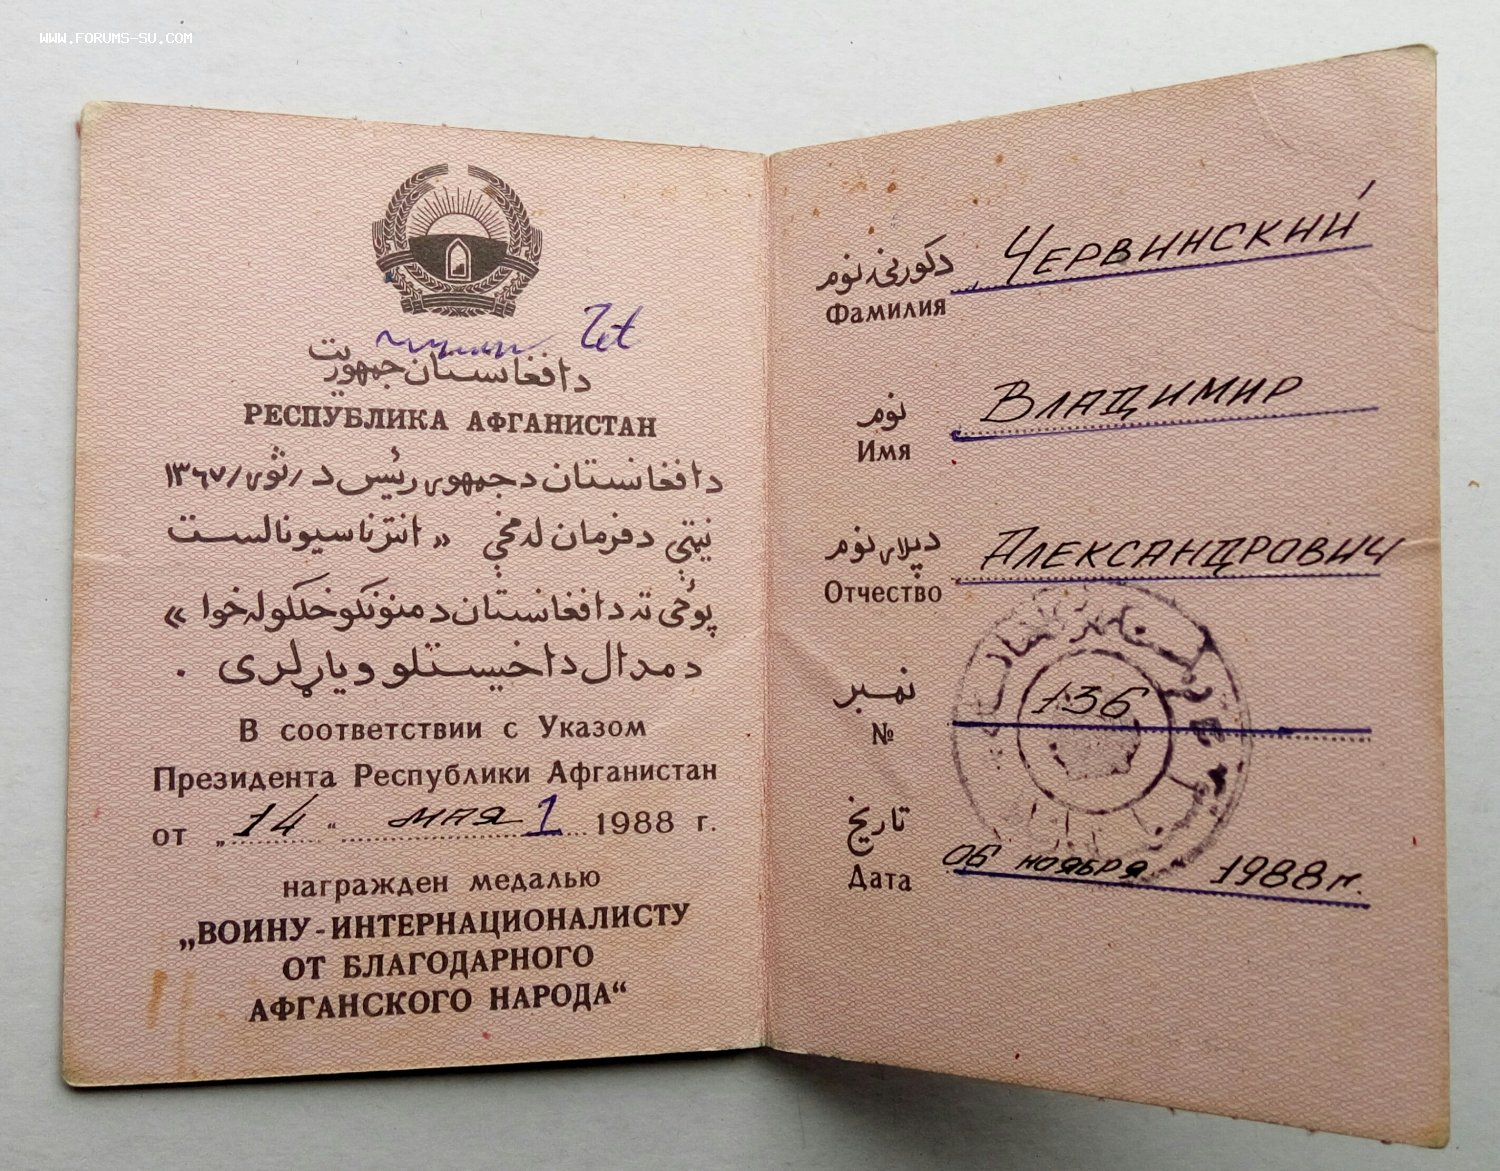 WWW.FORUMS-SU.COM
د افغانستان جمهوریت
РЕСПУБЛИКА АФГАНИСТАН
د افغانستان د جمهوری رئیس د /ثوری/ ۱۳۶۷
نیټې د فرمان له مخې « انترناسیونالست
پوځی ته د افغانستان د منونکو خلکو له خوا »
د مدال د اخیستلو ویاړ لری .
В соответствии с Указом
Президента Республики Афганистан
от „14“ мая 1 1988 г.
награжден медалью
„ВОИНУ-ИНТЕРНАЦИОНАЛИСТУ
ОТ БЛАГОДАРНОГО
АФГАНСКОГО НАРОДА“
د کورنۍ نوم
Фамилия ЧЕРВИНСКИЙ
نوم
Имя ВЛАДИМИР
د پلار نوم
Отчество АЛЕКСАНДРОВИЧ
نمبر
№ 136
تاریخ
Дата 06 ноября 1988 г.